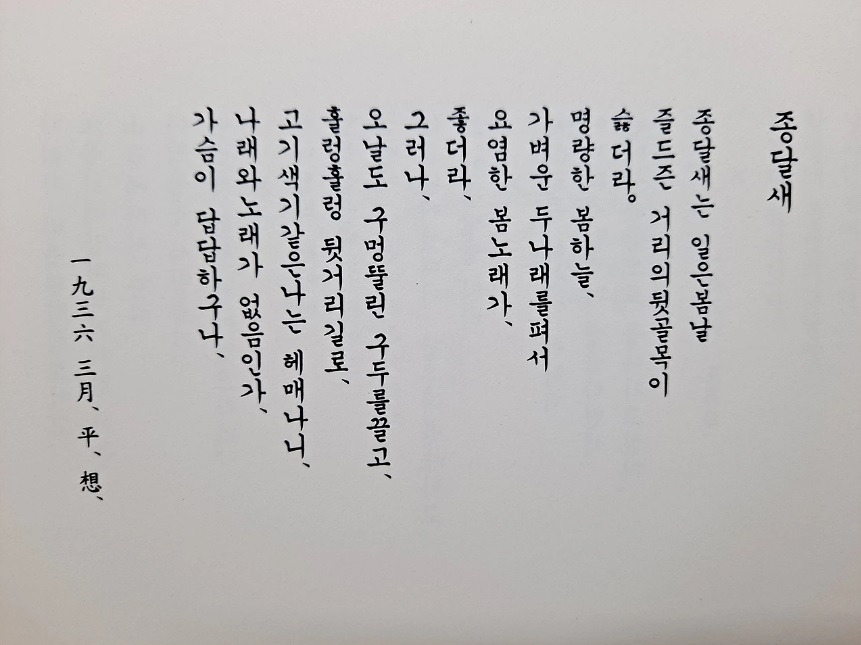 종달새
종달새는 일은봄날
즐드즌 거리의뒷골목이
슳더라。
명량한 봄하늘、
가벼운 두나래를펴서
요염한 봄노래가、
좋더라、
그러나、
오날도 구멍뚤린 구두를끌고、
훌렁훌렁 뒷거리길로、
고기색기같은나는 헤매나니、
나래와노래가 없음인가、
가슴이 답답하구나、
一九三六 三月、平、想、